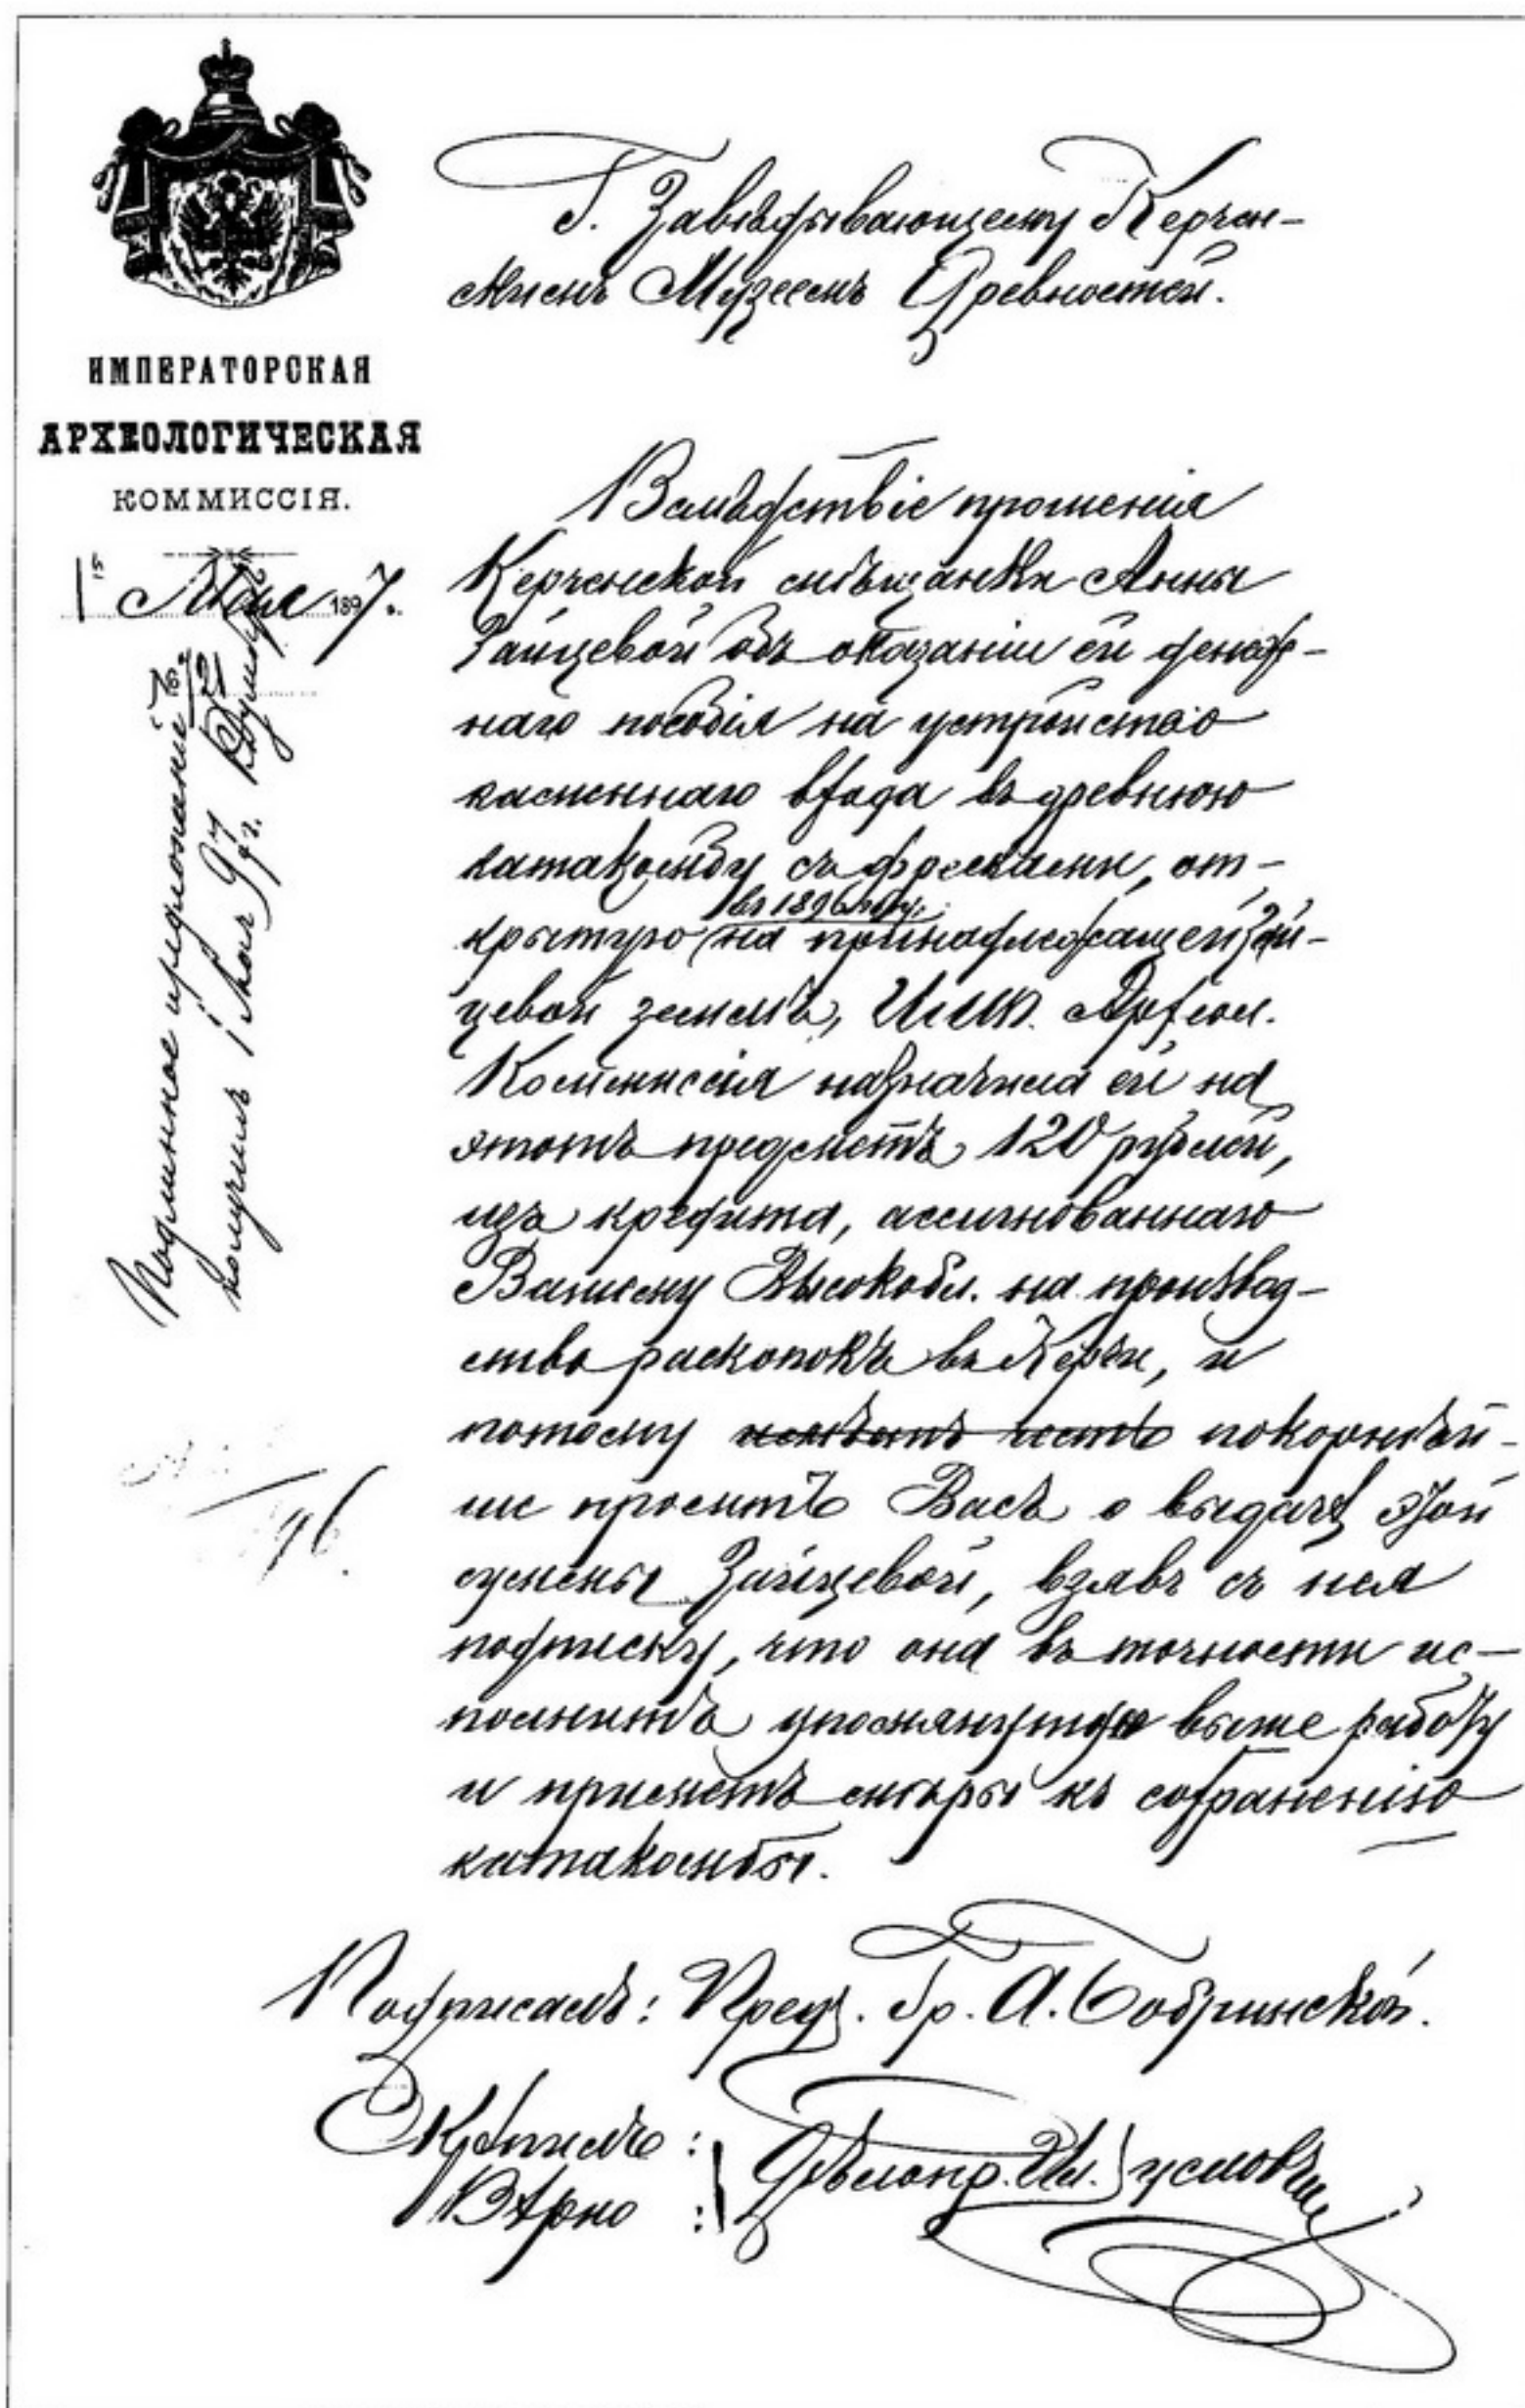 ИМПЕРАТОРСКАЯ
АРХЕОЛОГИЧЕСКАЯ
КОММИССІЯ.
15 Мая 1897.
Подлинное предложеніе
получилъ 1 97 г.
/96.
Г. Завѣдывающему Керчен-
скимъ Музеемъ Древностей.
Вслѣдствіе прошенія
Керченской мѣщанки Анны
Зайцевой объ оказаніи ей денеж-
наго пособія на устройство
каменнаго входа въ древнюю
катакомбу съ фресками, от-
въ 1896 году
крытую на принадлежащей Зай-
цевой землѣ, Имп. Археол.
Коммиссія назначила ей на
этотъ предметъ 120 рублей,
изъ кредита, ассигнованнаго
Вашему Высокобл. на производ-
ство раскопокъ въ Керчи, и
потому имѣетъ честь покорнѣй-
ше проситъ Васъ о выдачѣ этой
суммы Зайцевой, взявъ съ нея
подписку, что она въ точности ис-
полнитъ упомянутую выше работу
и приметъ мѣры къ сохраненію
катакомбы.
Подписалъ: Пред. Гр. А. Бобринской.
Скрѣпилъ :
Вѣрно : Дѣлопр. Ив. Суслов